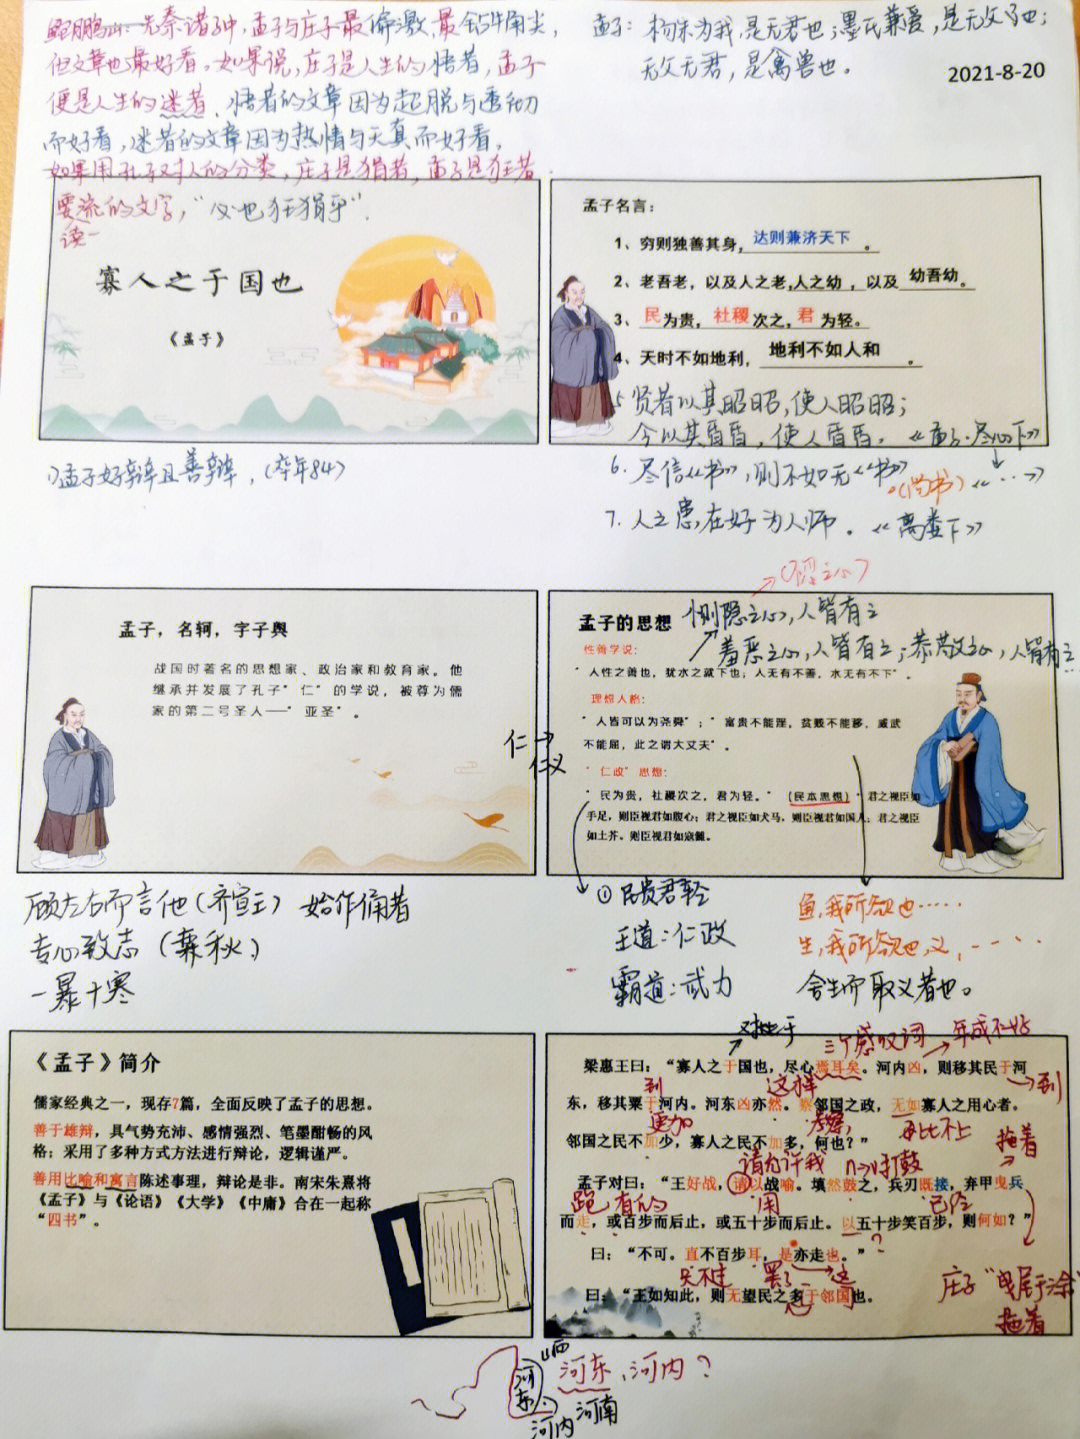 鲍鹏山:先秦诸子中,孟子与庄子最偏激,最钻牛角尖,
但文章也最好看。如果说,庄子是人生的悟者,孟子
便是人生的迷者。悟者的文章因为超脱与透彻
而好看,迷者的文章因为热情与天真而好看。
如果用孔子对人的分类,庄子是狷者,孟子是狂者
要流的文字,“必也狂狷乎”.
读一
孟子:杨朱为我,是无君也;墨氏兼爱,是无父也;
无父无君,是禽兽也。
2021-8-20
寡人之于国也
《孟子》
孟子名言:
1、穷则独善其身,达则兼济天下。
2、老吾老,以及人之老,人之幼,以及幼吾幼。
3、民为贵,社稷次之,君为轻。
4、天时不如地利,地利不如人和。
5 贤者以其昭昭,使人昭昭;
今以其昏昏,使人昏昏。《孟子·尽心下》
6. 尽信《书》,则不如无《书》
(尚书)《…》
7. 人之患,在好为人师。《离娄下》
1)孟子好辩且善辩,(卒年84)
孟子,名轲,字子舆
战国时著名的思想家、政治家和教育家。他
继承并发展了孔子“仁”的学说,被尊为儒
家的第二号圣人——“亚圣”。
仁→
仁义
孟子的思想
恻隐之心,人皆有之
羞恶之心,人皆有之;恭敬之心,人皆有之
性善学说:
“人性之善也,犹水之就下也;人无有不善,水无有不下”。
理想人格:
“人皆可以为尧舜”;“富贵不能淫,贫贱不能移,威武
不能屈,此之谓大丈夫”。
“仁政”思想:
“民为贵,社稷次之,君为轻。”(民本思想)“君之视臣如
手足,则臣视君如腹心;君之视臣如犬马,则臣视君如国人;君之视臣
如土芥,则臣视君如寇雠。
顾左右而言他(齐宣王) 始作俑者
专心致志(弈秋)
一暴十寒
①民贵君轻
王道:仁政
霸道:武力
鱼,我所欲也……
生,我所欲也,义,----
舍生而取义者也。
《孟子》简介
儒家经典之一,现存7篇,全面反映了孟子的思想。
善于雄辩,具气势充沛、感情强烈、笔墨酣畅的风
格;采用了多种方式方法进行辩论,逻辑谨严。
善用比喻和寓言陈述事理,辩论是非。南宋朱熹将
《孟子》与《论语》《大学》《中庸》合在一起称
“四书”。
对于
三个感叹词
年成不好
梁惠王曰:“寡人之于国也,尽心焉耳矣。河内凶,则移其民于河
到
这样
到
东,移其粟于河内。河东凶亦然。察邻国之政,无如寡人之用心者。
更加
再比不上
邻国之民不加少,寡人之民不加多,何也?”
拖着
请允许我
n→v打鼓
孟子对曰:“王好战,请以战喻。填然鼓之,兵刃既接,弃甲曳兵
跑
有的
用
已经
而走,或百步而后止,或五十步而后止。以五十步笑百步,则何如?”
曰:“不可。直不百步耳,是亦走也。”
只不过
罢了
这
庄子“曳尾于涂”
曰:“王如知此,则无望民之多于邻国也。
拖着
山西
河东、河内?
河东
河内 河南